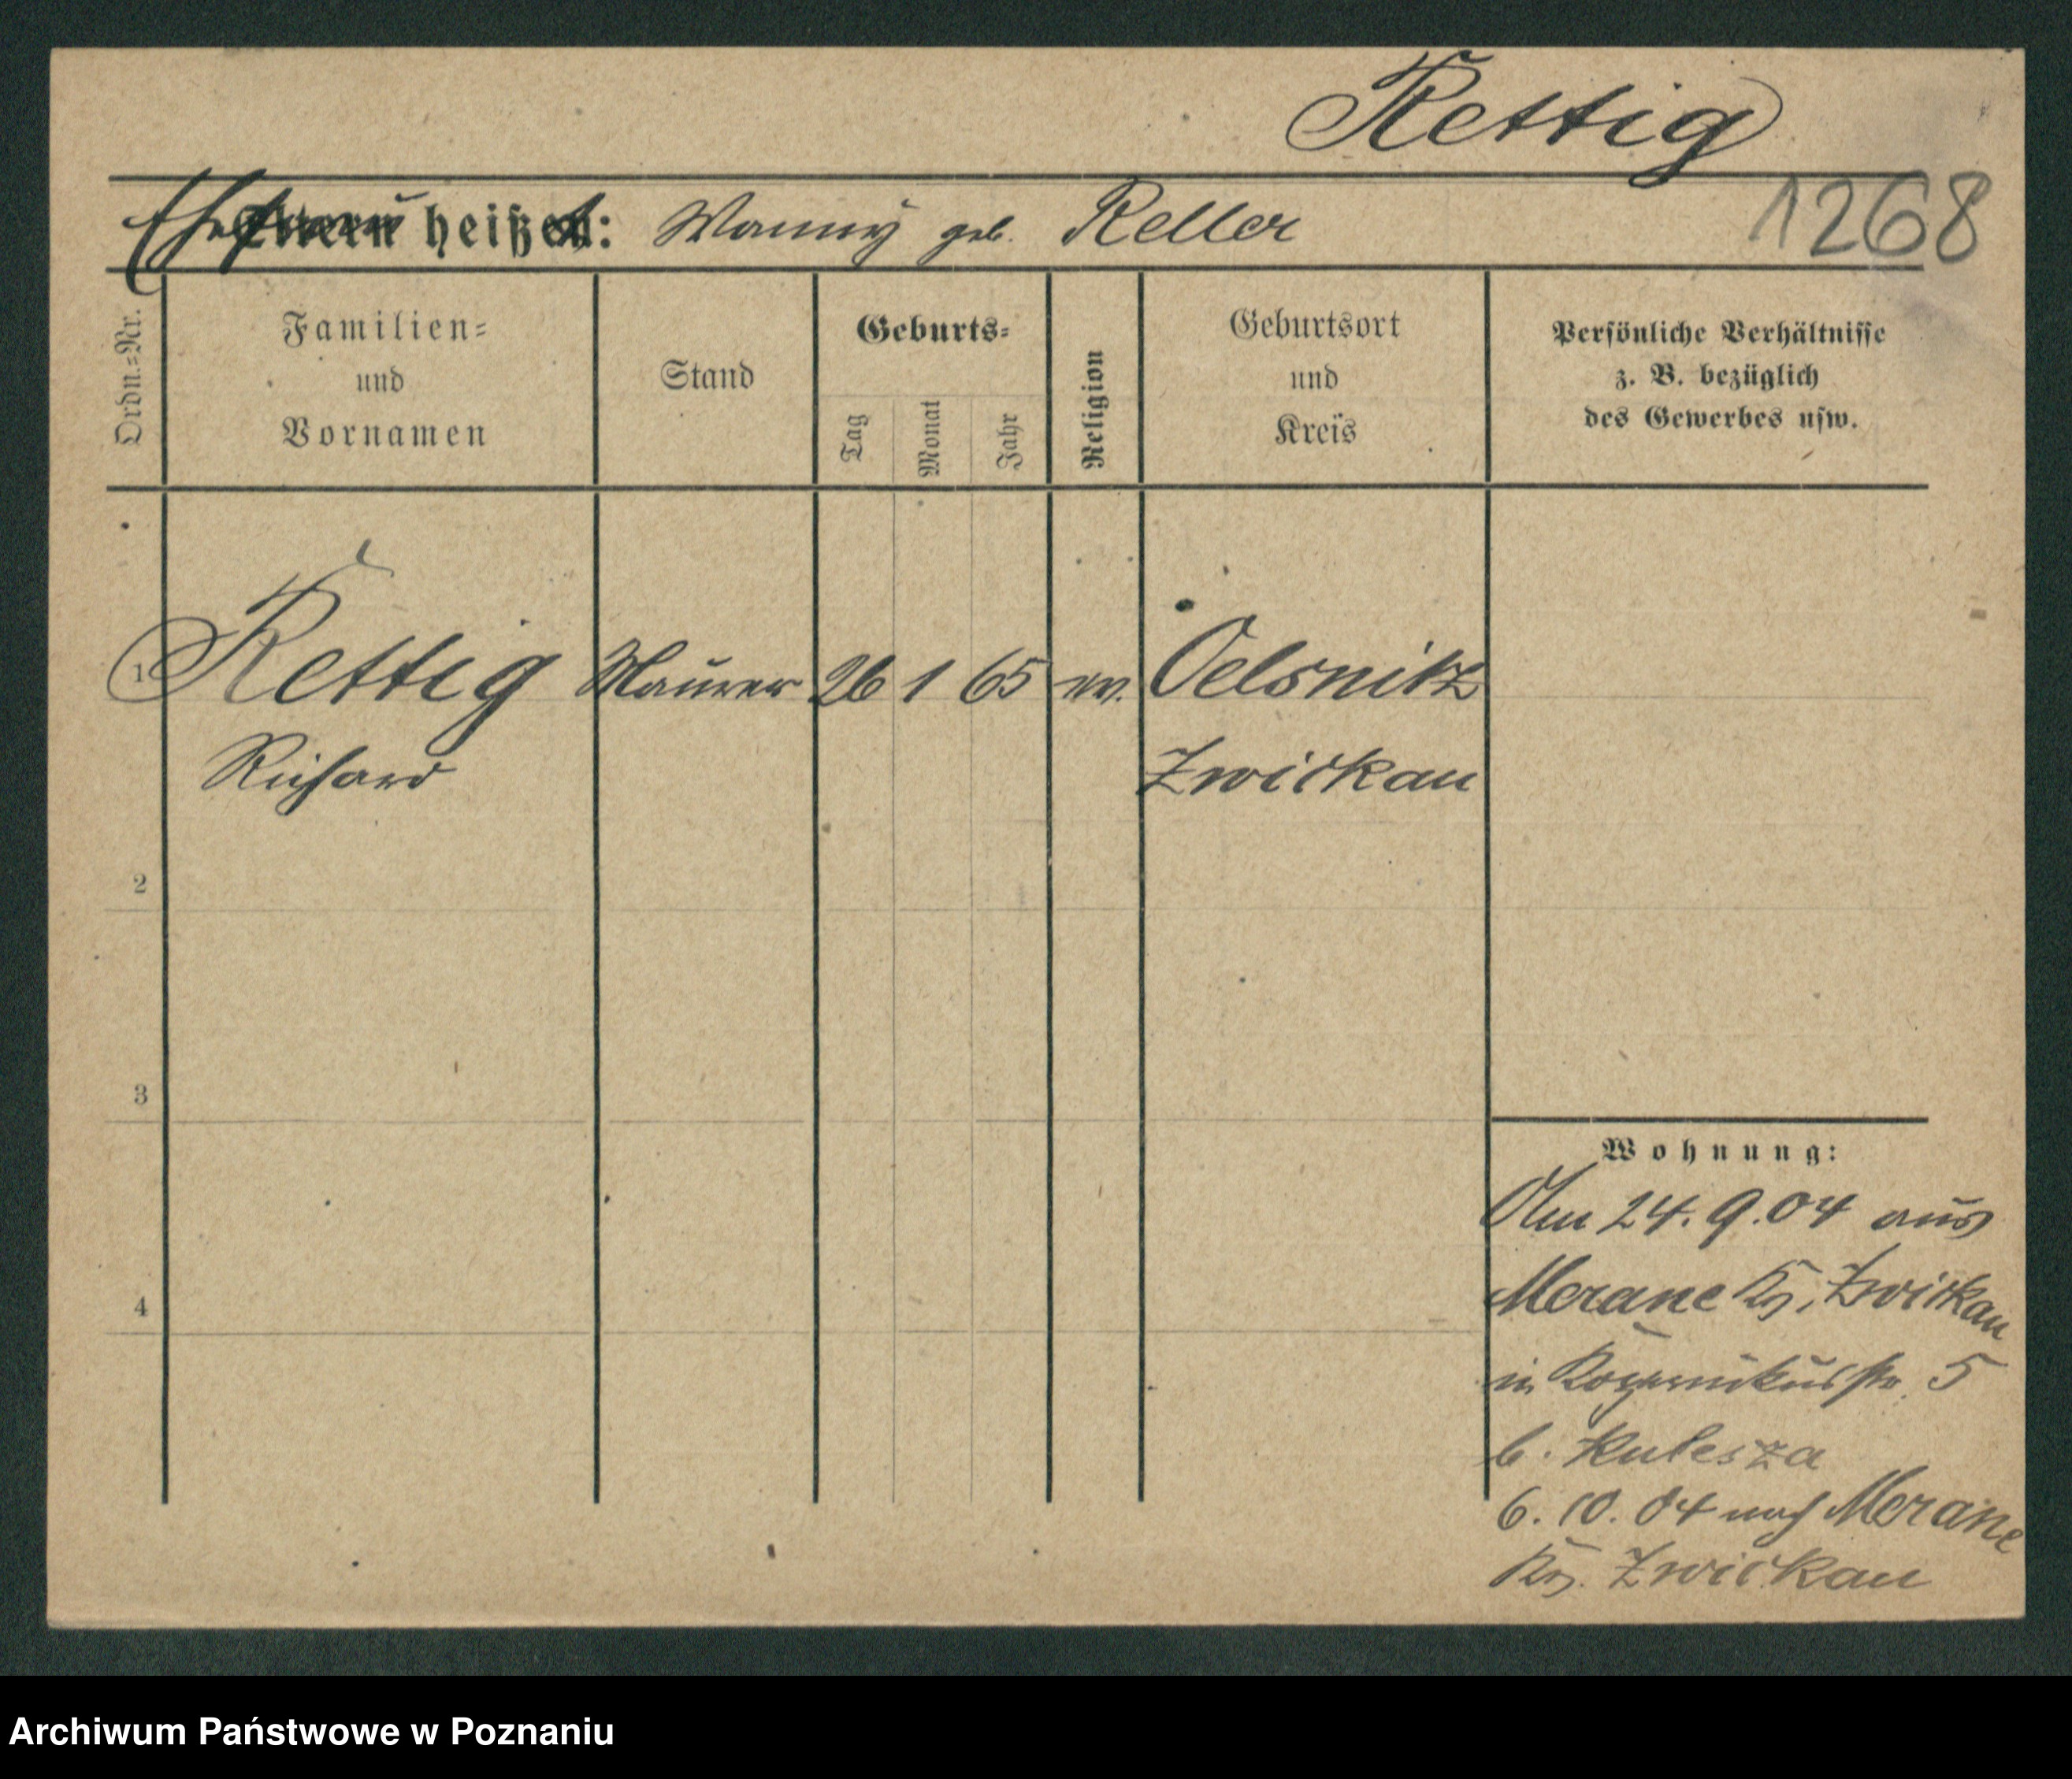 Rettig
1268
Ehefrau heißt: Wanny geb. Keller
Ordn.=Nr.
Familien=
und
Vornamen
Stand
Geburts=
Tag
Monat
Jahr
Religion
Geburtsort
und
Kreis
Persönliche Verhältnisse
z. B. bezüglich
des Gewerbes usw.
1 Rettig Maurer 26 1 65 ev. Oelsnitz
Richard Zwickau
2
3
4
Wohnung:
Am 24.9.04 aus
Merane Krs. Zwickau
in Kopernikusstr. 5
b. Kulesza
6.10.04 nach Merane
Krs. Zwickau
Archiwum Państwowe w Poznaniu